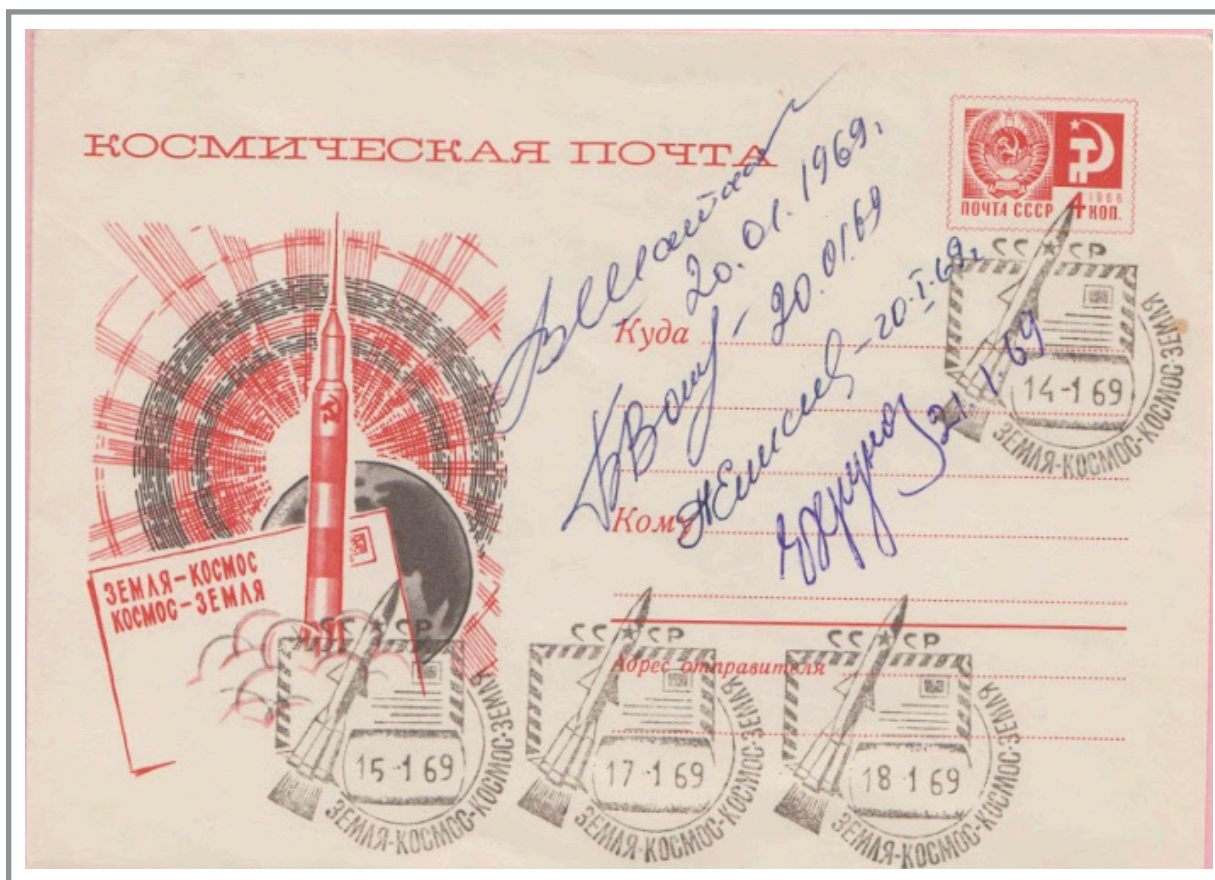 КОСМИЧЕСКАЯ ПОЧТА
1966
ПОЧТА СССР 4 КОП.
20.01.1969г
Куда
20.01.69
20.I.69г
21.1.69
Кому
Адрес отправителя
ЗЕМЛЯ-КОСМОС
КОСМОС-ЗЕМЛЯ
СССР
14-1 69
ЗЕМЛЯ-КОСМОС-КОСМОС-ЗЕМЛЯ
СССР
15-1 69
ЗЕМЛЯ-КОСМОС-КОСМОС-ЗЕМЛЯ
СССР
17-1 69
ЗЕМЛЯ-КОСМОС-КОСМОС-ЗЕМЛЯ
СССР
18-1 69
ЗЕМЛЯ-КОСМОС-КОСМОС-ЗЕМЛЯ